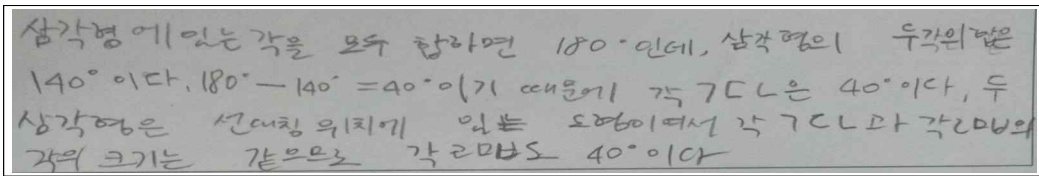 삼각형에 있는 각을 모두 합하면 180°인데, 삼각형의 두각의 합은
140°이다. 180°-140°=40°이기 때문에 각 ㄱㄷㄴ은 40°이다, 두
삼각형은 선대칭 위치에 있는 도형이여서 각 ㄱㄷㄴ과 각ㄹㅁㅂ의
각의 크기는 같으므로 각 ㄹㅁㅂ도 40°이다